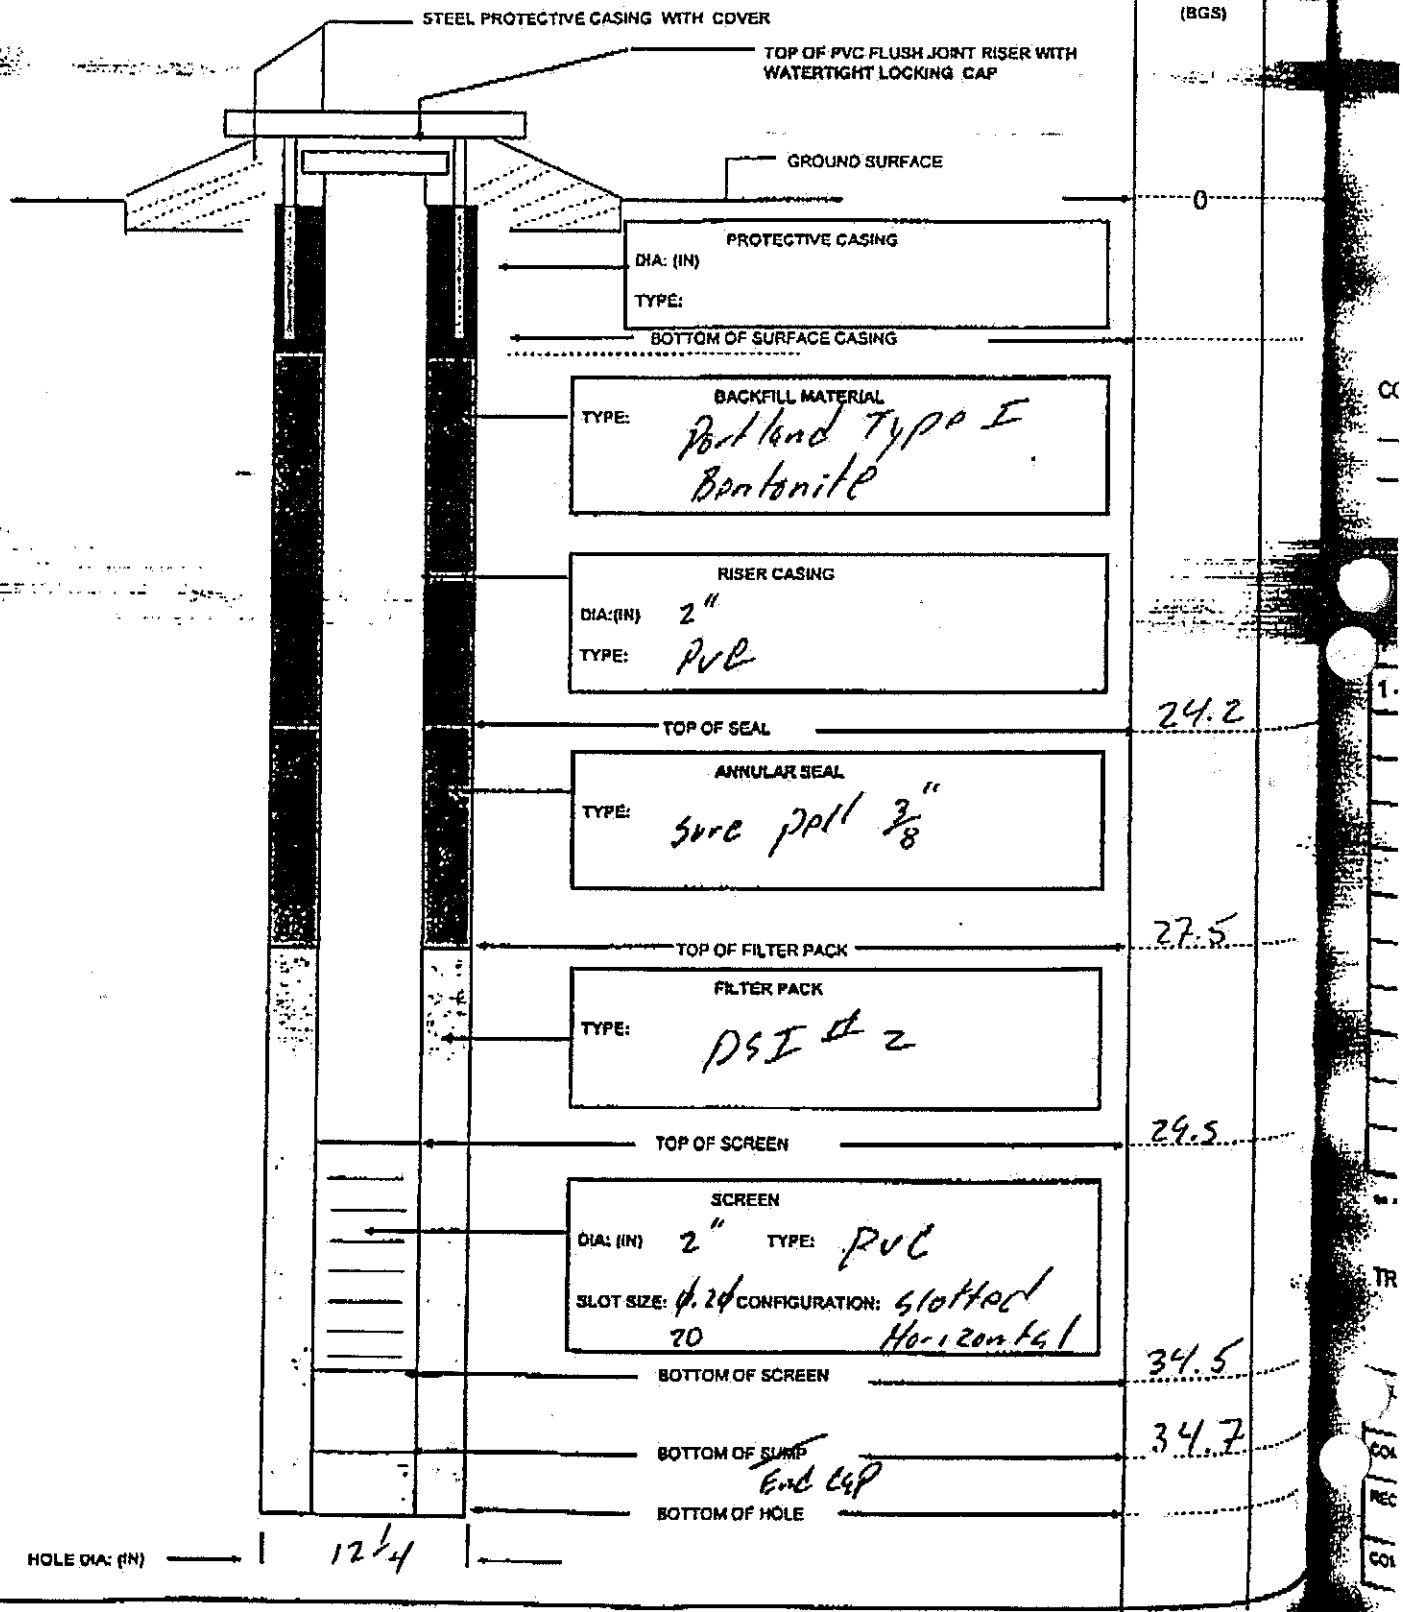 STEEL PROTECTIVE CASING WITH COVER
(BGS)
TOP OF PVC FLUSH JOINT RISER WITH
WATERTIGHT LOCKING CAP
GROUND SURFACE
0
PROTECTIVE CASING
DIA: (IN)
TYPE:
BOTTOM OF SURFACE CASING
BACKFILL MATERIAL
TYPE: Portland Type I
Bentonite
RISER CASING
DIA:(IN) 2"
TYPE: PVC
TOP OF SEAL 24.2
ANNULAR SEAL
TYPE: Sure pell 3/8"
TOP OF FILTER PACK 27.5
FILTER PACK
TYPE: DSI # 2
TOP OF SCREEN 29.5
SCREEN
DIA: (IN) 2" TYPE: PVC
SLOT SIZE: 0.20 CONFIGURATION: Slotted
20 Horizontal
BOTTOM OF SCREEN 34.5
BOTTOM OF SUMP 34.7
End Cap
BOTTOM OF HOLE
HOLE DIA: (IN) 12 1/4
CO
1.
TR
COL
REC
COL